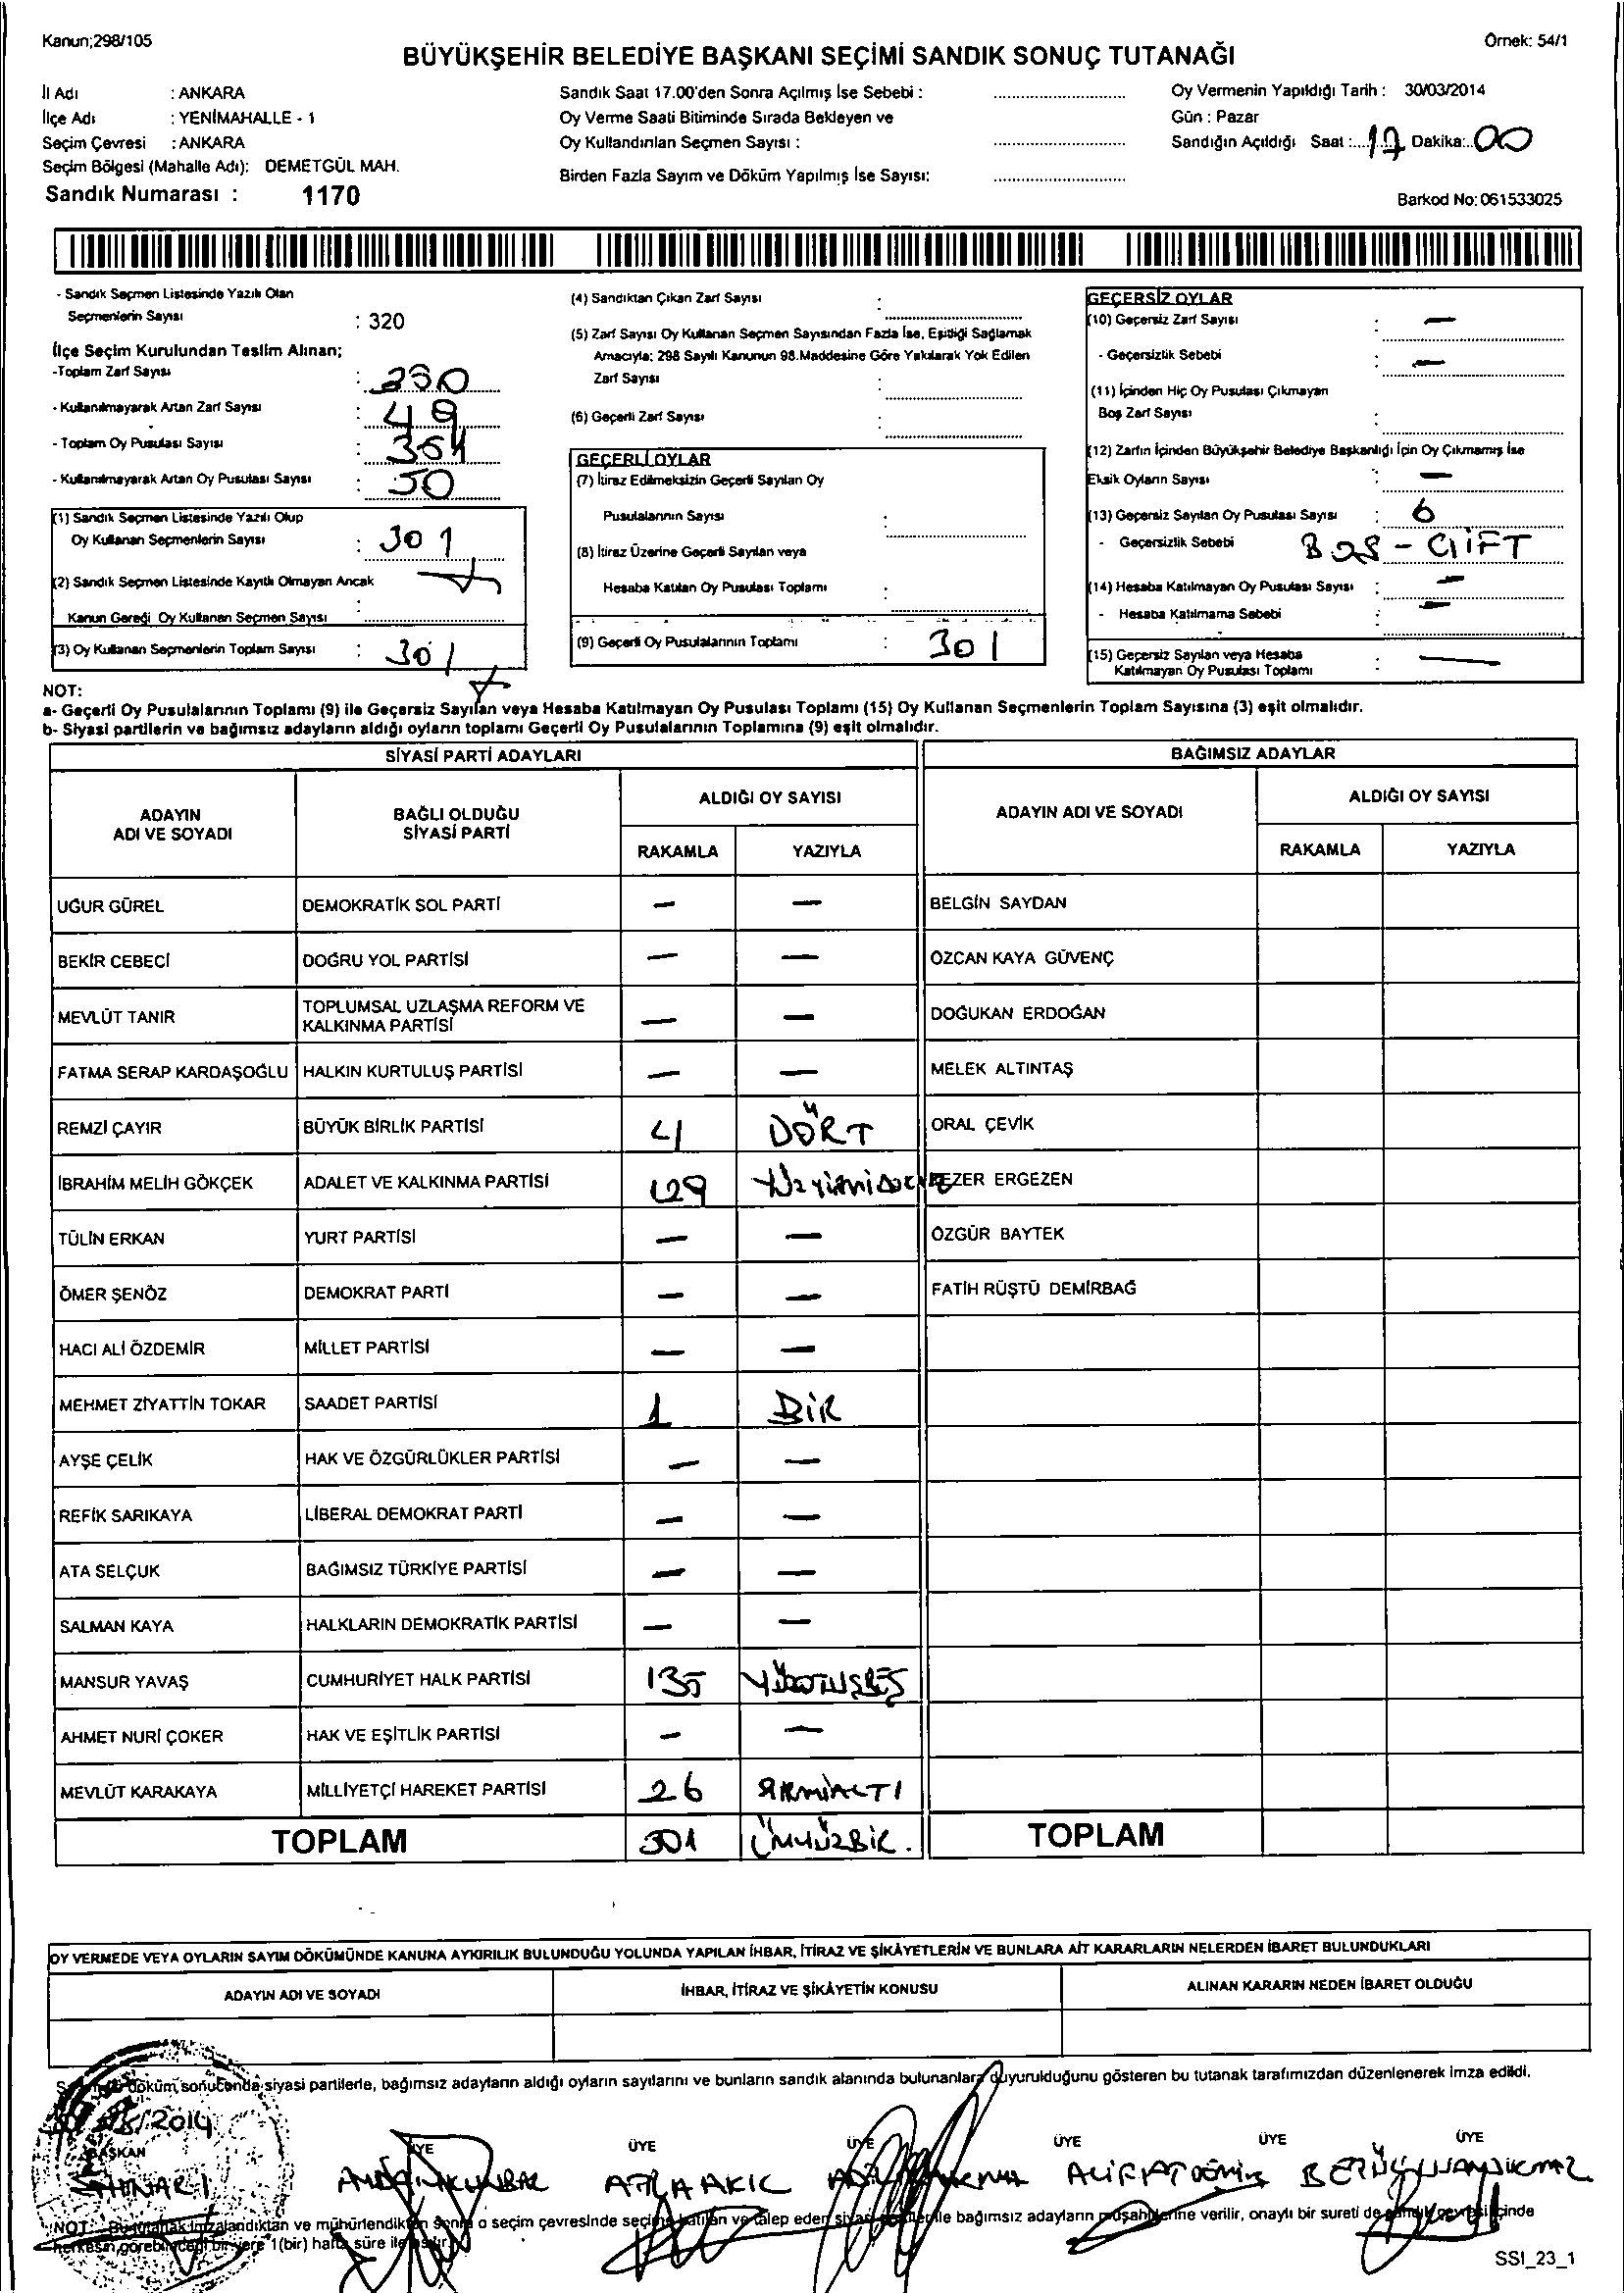 Kanun;298/105
Örnek: 54/1
BÜYÜKŞEHİR BELEDİYE BAŞKANI SEÇİMİ SANDIK SONUÇ TUTANAĞI
İl Adı : ANKARA
İlçe Adı : YENİMAHALLE - 1
Seçim Çevresi : ANKARA
Seçim Bölgesi (Mahalle Adı): DEMETGÜL MAH.
Sandık Numarası : 1170
Sandık Saat 17.00'den Sonra Açılmış İse Sebebi :
Oy Verme Saati Bitiminde Sırada Bekleyen ve
Oy Kullandırılan Seçmen Sayısı :
Birden Fazla Sayım ve Döküm Yapılmış İse Sayısı:
Oy Vermenin Yapıldığı Tarih : 30/03/2014
Gün : Pazar
Sandığın Açıldığı Saat : 17 Dakika: 00
Barkod No: 061533025
- Sandık Seçmen Listesinde Yazılı Olan
Seçmenlerin Sayısı : 320
İlçe Seçim Kurulundan Teslim Alınan;
-Toplam Zarf Sayısı :
- Kullanılmayarak Artan Zarf Sayısı : 49
- Toplam Oy Pusulası Sayısı :
- Kullanılmayarak Artan Oy Pusulası Sayısı : 50
(1) Sandık Seçmen Listesinde Yazılı Olup
Oy Kullanan Seçmenlerin Sayısı : 301
(2) Sandık Seçmen Listesinde Kayıtlı Olmayan Ancak
Kanun Gereği Oy Kullanan Seçmen Sayısı :
(3) Oy Kullanan Seçmenlerin Toplam Sayısı : 301
(4) Sandıktan Çıkan Zarf Sayısı :
(5) Zarf Sayısı Oy Kullanan Seçmen Sayısından Fazla İse, Eşitliği Sağlamak
Amacıyla; 298 Sayılı Kanunun 98.Maddesine Göre Yakılarak Yok Edilen
Zarf Sayısı :
(6) Geçerli Zarf Sayısı :
GEÇERLİ OYLAR
(7) İtiraz Edilmeksizin Geçerli Sayılan Oy
Pusulalarının Sayısı :
(8) İtiraz Üzerine Geçerli Sayılan veya
Hesaba Katılan Oy Pusulası Toplamı :
(9) Geçerli Oy Pusulalarının Toplamı : 301
GEÇERSİZ OYLAR
(10) Geçersiz Zarf Sayısı : —
- Geçersizlik Sebebi : —
(11) İçinden Hiç Oy Pusulası Çıkmayan
Boş Zarf Sayısı :
(12) Zarfın İçinden Büyükşehir Belediye Başkanlığı İçin Oy Çıkmamış İse
Eksik Oyların Sayısı : —
(13) Geçersiz Sayılan Oy Pusulası Sayısı : 6
- Geçersizlik Sebebi : BOŞ - ÇİFT
(14) Hesaba Katılmayan Oy Pusulası Sayısı : —
- Hesaba Katılmama Sebebi : —
(15) Geçersiz Sayılan veya Hesaba
Katılmayan Oy Pusulası Toplamı : —
NOT:
a- Geçerli Oy Pusulalarının Toplamı (9) ile Geçersiz Sayılan veya Hesaba Katılmayan Oy Pusulası Toplamı (15) Oy Kullanan Seçmenlerin Toplam Sayısına (3) eşit olmalıdır.
b- Siyasi partilerin ve bağımsız adayların aldığı oyların toplamı Geçerli Oy Pusulalarının Toplamına (9) eşit olmalıdır.
SİYASİ PARTİ ADAYLARI
BAĞIMSIZ ADAYLAR
ADAYIN ADI VE SOYADI
BAĞLI OLDUĞU SİYASİ PARTİ
ALDIĞI OY SAYISI
RAKAMLA YAZIYLA
ADAYIN ADI VE SOYADI
ALDIĞI OY SAYISI
RAKAMLA YAZIYLA
UĞUR GÜREL DEMOKRATİK SOL PARTİ — — BELGİN SAYDAN
BEKİR CEBECİ DOĞRU YOL PARTİSİ — — ÖZCAN KAYA GÜVENÇ
MEVLÜT TANIR TOPLUMSAL UZLAŞMA REFORM VE KALKINMA PARTİSİ — — DOĞUKAN ERDOĞAN
FATMA SERAP KARDAŞOĞLU HALKIN KURTULUŞ PARTİSİ — — MELEK ALTINTAŞ
REMZİ ÇAYIR BÜYÜK BİRLİK PARTİSİ 4 DÖRT ORAL ÇEVİK
İBRAHİM MELİH GÖKÇEK ADALET VE KALKINMA PARTİSİ 129 EZER ERGEZEN
TÜLİN ERKAN YURT PARTİSİ — — ÖZGÜR BAYTEK
ÖMER ŞENÖZ DEMOKRAT PARTİ — — FATİH RÜŞTÜ DEMİRBAĞ
HACI ALİ ÖZDEMİR MİLLET PARTİSİ — —
MEHMET ZİYATTİN TOKAR SAADET PARTİSİ 1 BİR
AYŞE ÇELİK HAK VE ÖZGÜRLÜKLER PARTİSİ — —
REFİK SARIKAYA LİBERAL DEMOKRAT PARTİ — —
ATA SELÇUK BAĞIMSIZ TÜRKİYE PARTİSİ — —
SALMAN KAYA HALKLARIN DEMOKRATİK PARTİSİ — —
MANSUR YAVAŞ CUMHURİYET HALK PARTİSİ 135
AHMET NURİ ÇOKER HAK VE EŞİTLİK PARTİSİ — —
MEVLÜT KARAKAYA MİLLİYETÇİ HAREKET PARTİSİ 26
TOPLAM 301 TOPLAM
OY VERMEDE VEYA OYLARIN SAYIM DÖKÜMÜNDE KANUNA AYKIRILIK BULUNDUĞU YOLUNDA YAPILAN İHBAR, İTİRAZ VE ŞİKÂYETLERİN VE BUNLARA AİT KARARLARIN NELERDEN İBARET BULUNDUKLARI
ADAYIN ADI VE SOYADI
İHBAR, İTİRAZ VE ŞİKÂYETİN KONUSU
ALINAN KARARIN NEDEN İBARET OLDUĞU
döküm sonucunda siyasi partilerle, bağımsız adayların aldığı oyların sayılarını ve bunların sandık alanında bulunanlara duyurulduğunu gösteren bu tutanak tarafımızdan düzenlenerek imza edildi.
/2014
BAŞKAN ÜYE ÜYE ÜYE ÜYE ÜYE ÜYE
NOT: Bu tutanak imzalandıktan ve mühürlendikten sonra o seçim çevresinde seçime katılan ve talep eden siyasi ile bağımsız adayların müşahitlerine verilir, onaylı bir sureti de sandık çevresi içinde
herkesin görebileceği bir yere 1(bir) hafta süre ile
SSI_23_1